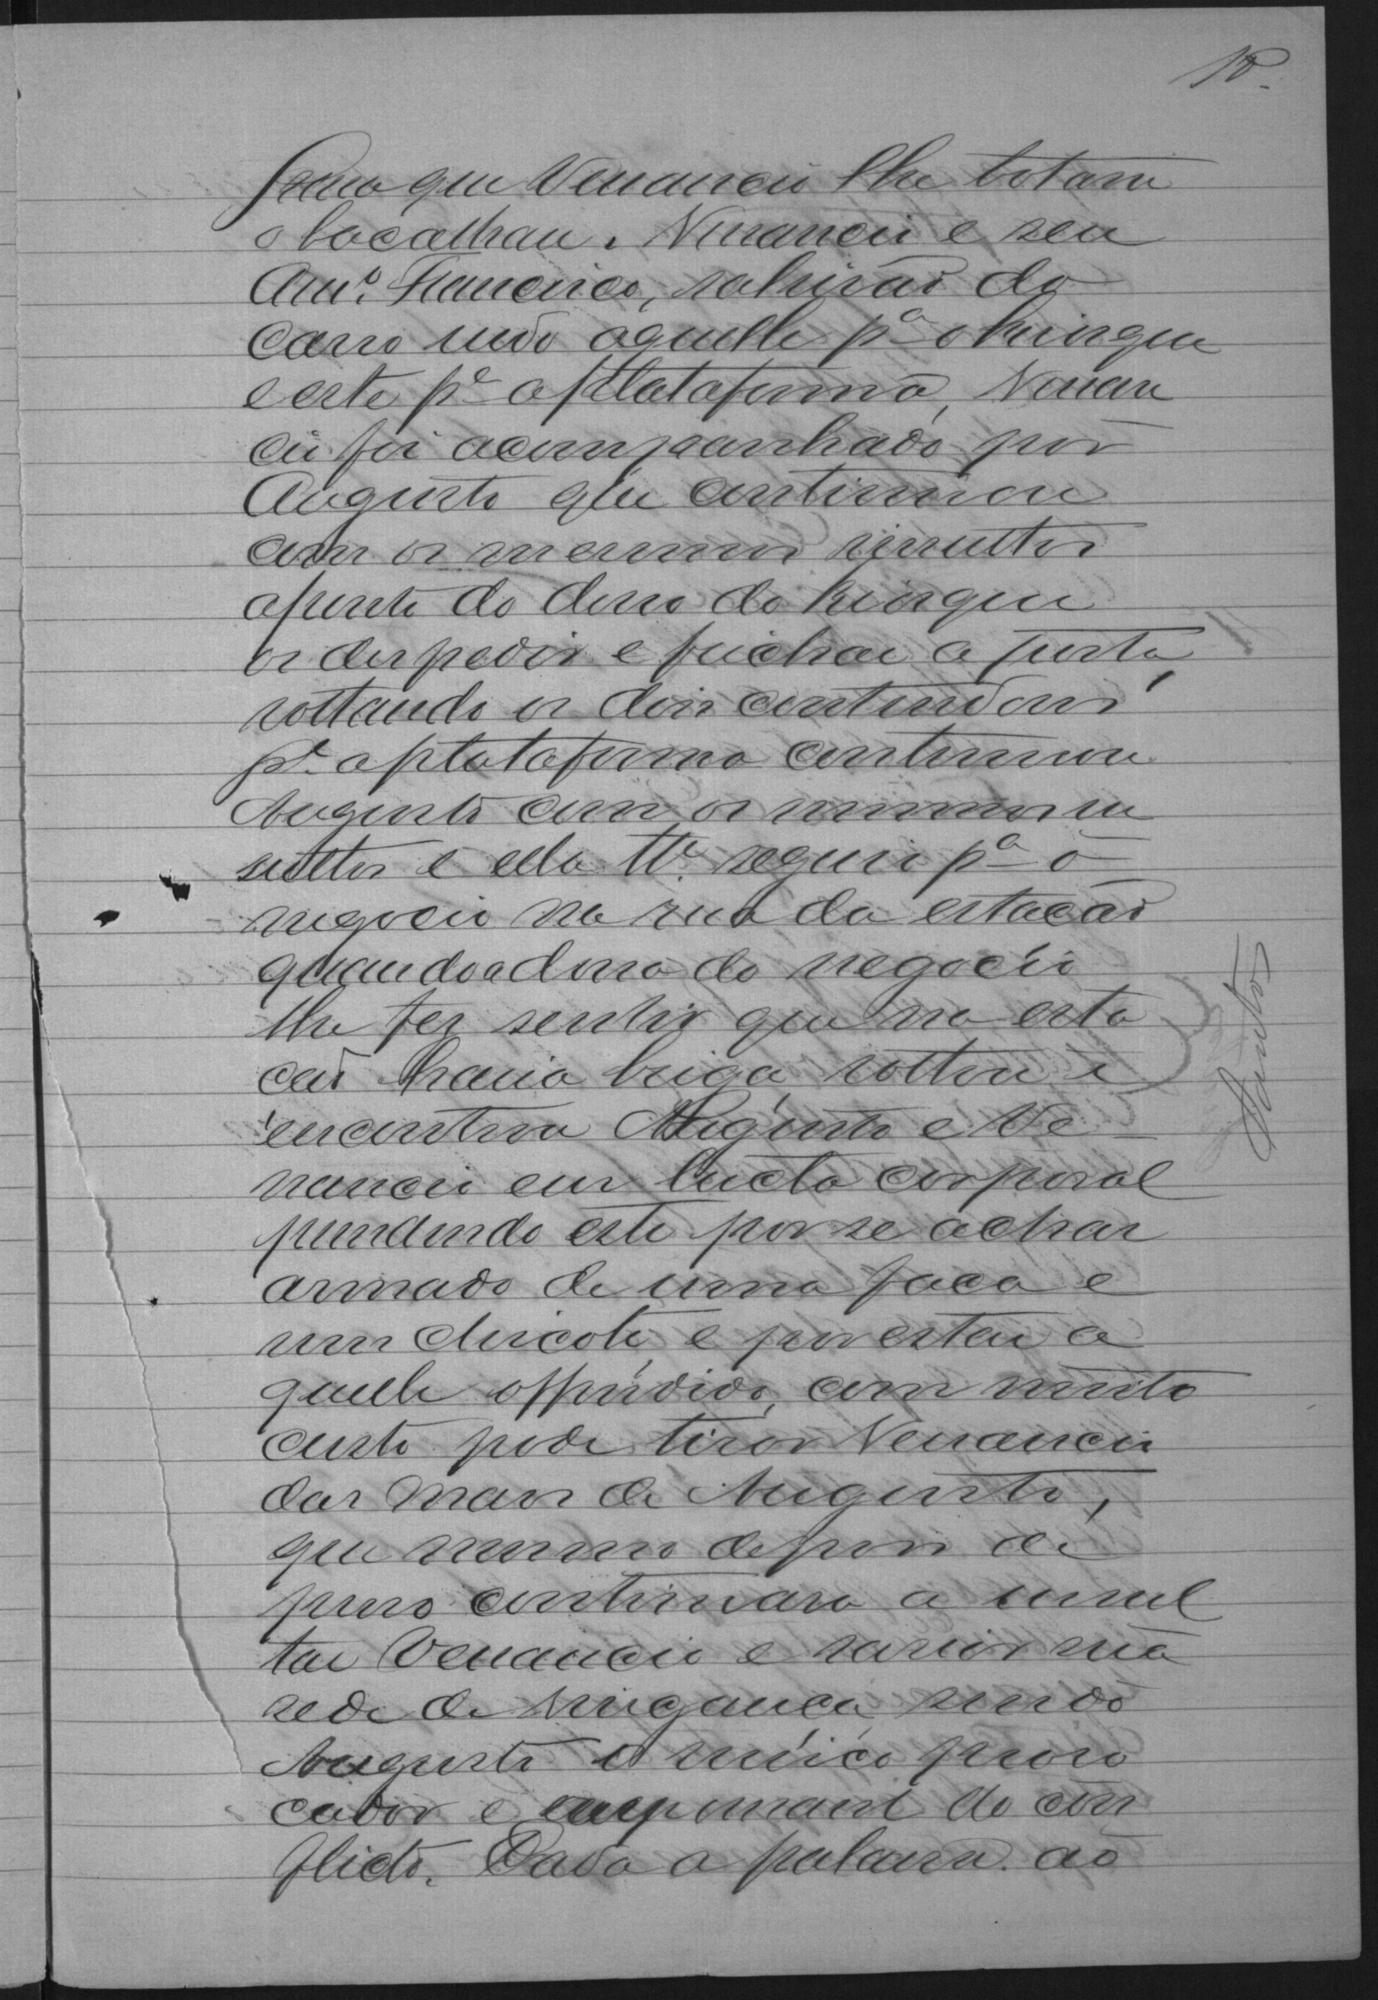 10.
que Venancio lhe botara
o bacalhau. Venancio e seu
Amº. Francisco, sahirão do
carro indo aquelle pª o kiosque
e este pª a plataforma, Venan
cio foi acompanhado por
Augusto que continuou
com os mesmos insultos
a ponto do dono do kiosque
os despedir e feichar a porta,
voltando os dois contendores
pª a plataforma continuou
Augusto com os mesmos in
sultos e ella Tª. seguio pª o
negocio na rua da estacão
quando a dona do negocio
lhe fez sentir que na esta
cão havia briga voltou e
encontrou Augusto e Ve
nancio em lucta corporal
prendendo este por se achar
armado de uma faca e
um chicote e por estar a
quelle offendido, com muito
custo pode tirar Venancio
das maos de Augusto,
que mesmo depois de
preso continuara a insul
tar Venancio e
sede de vingança, sendo
Augusto o unico provo
cador e responsavel do con
flicto. Dada a palavra ao
Santos